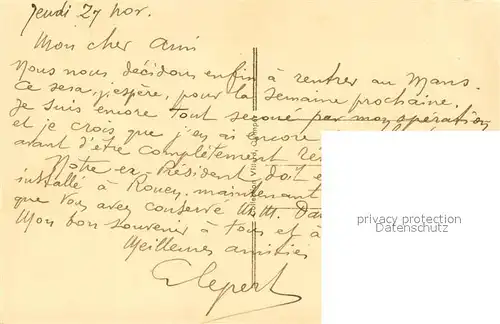 Jeudi 27 nov.
Mon cher Ami
Nous nous décidons enfin à rentrer au Mans.
Ce sera, j'espère, pour la semaine prochaine.
Je suis encore tout secoué par mon opération
et je crois que j'en ai encore
avant d'être complètement
Notre ex Président doit
installé à Rouen maintenant
que vous avez conservé
Mon bon souvenir à tous et à
Meilleures amitiés
privacy protection
Personaldatenschutz